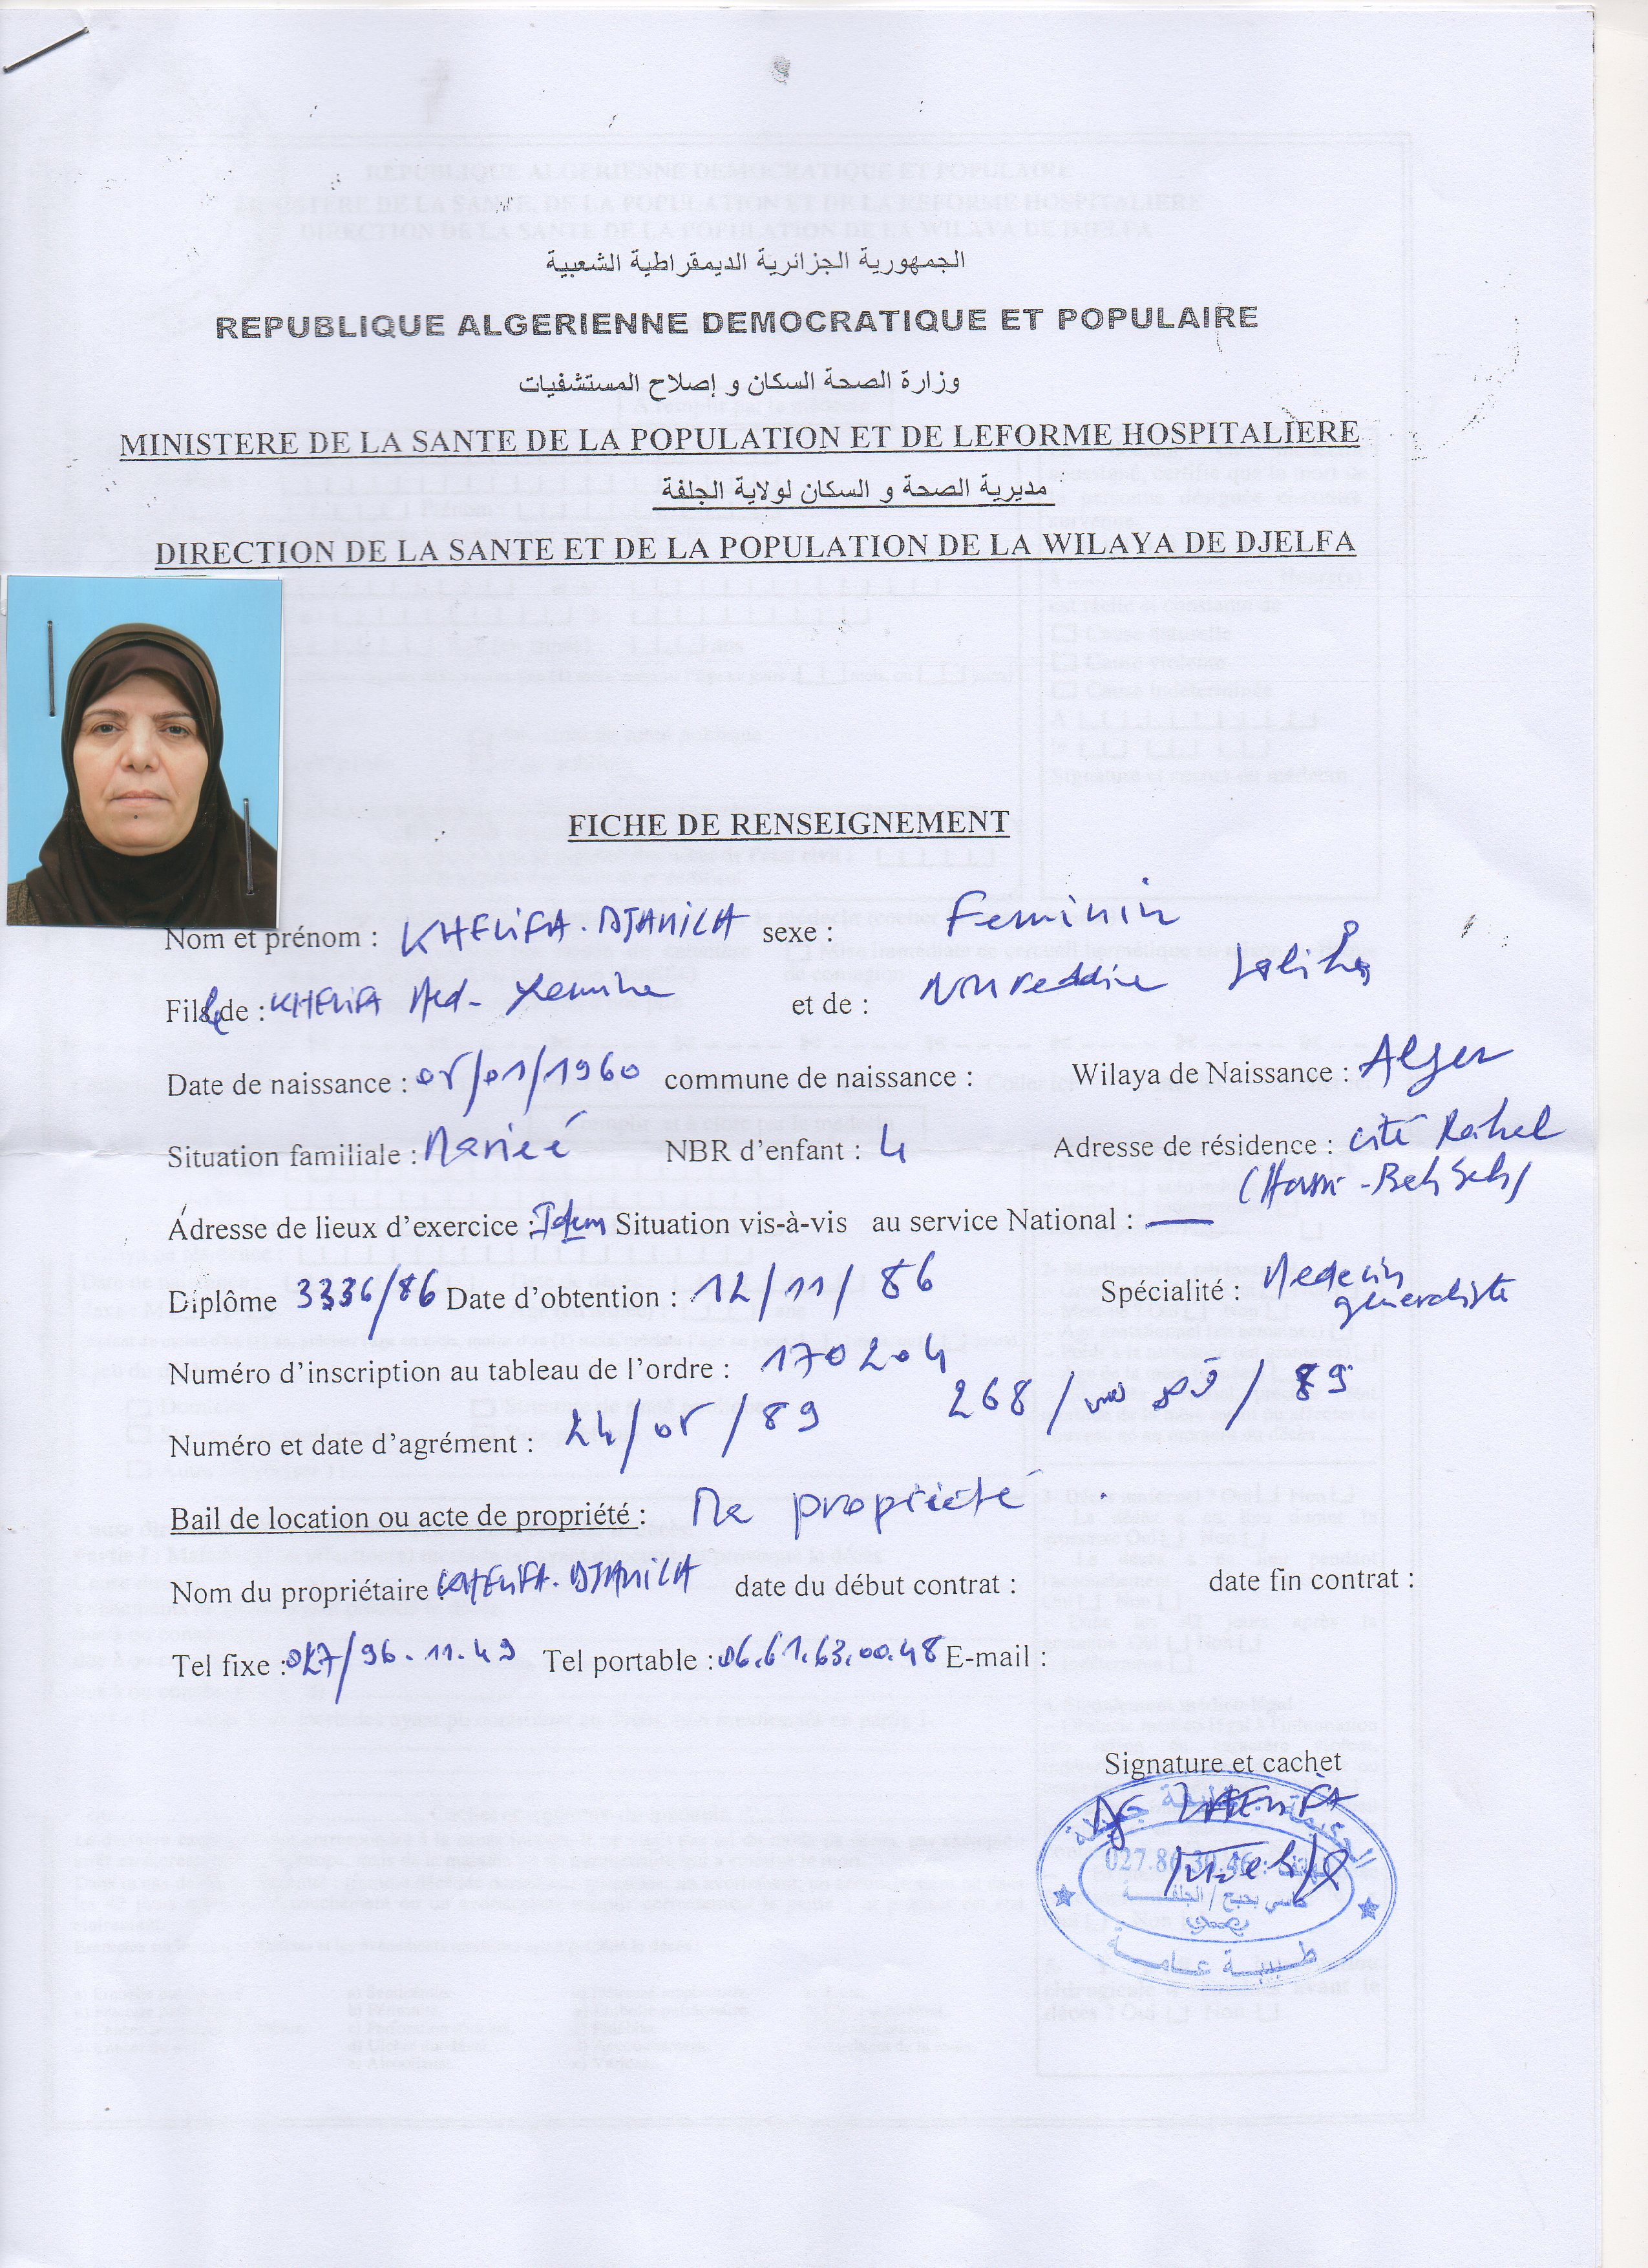 الجمهورية الجزائرية الديمقراطية الشعبية
REPUBLIQUE ALGERIENNE DEMOCRATIQUE ET POPULAIRE
وزارة الصحة السكان و إصلاح المستشفيات
MINISTERE DE LA SANTE DE LA POPULATION ET DE LEFORME HOSPITALIERE
مديرية الصحة و السكان لولاية الجلفة
DIRECTION DE LA SANTE ET DE LA POPULATION DE LA WILAYA DE DJELFA
FICHE DE RENSEIGNEMENT
Nom et prénom : KHELIFA. DJAMILA sexe : Feminin
Fils de : KHELIFA Med- et de : Noureddine Saliha
Date de naissance : 05/01/1960 commune de naissance : Wilaya de Naissance : Alger
Situation familiale : Mariée NBR d'enfant : 4 Adresse de résidence : cité
Adresse de lieux d'exercice : Idem Situation vis-à-vis au service National : —
Diplôme 3336/86 Date d'obtention : 12/11/86 Spécialité : Medecin generaliste
Numéro d'inscription au tableau de l'ordre : 170204
Numéro et date d'agrément : 24/05/89 268/ /89
Bail de location ou acte de propriété : Ma propriété .
Nom du propriétaire : KHELIFA. DJAMILA date du début contrat : date fin contrat :
Tel fixe : 027/96.11.49 Tel portable : 06.61.63.00.48 E-mail :
Signature et cachet
Dr KHELIFA
الحكيمة خليفة جميلة
حاسي بحبح / الجلفة
طبيبة عامة